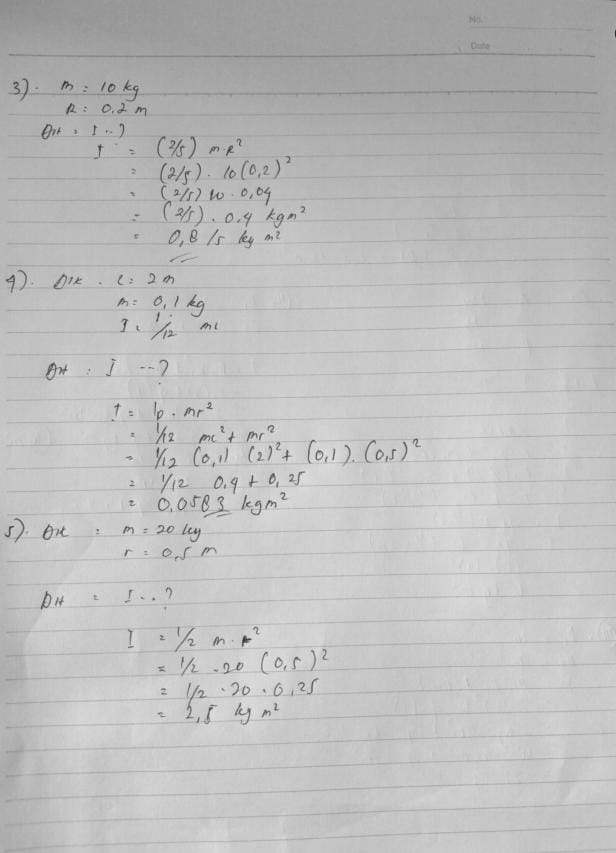 No.
Date
3). m = 10 kg
R = 0,2 m
Dit = I ..?
I = (2/5) m.R²
= (2/5). 10 (0,2)²
= (2/5) 10 . 0,04
= (2/5) . 0,4 kgm²
= 0,8 /5 kg m²
4). Dik . l = 2 m
m = 0,1 kg
I = 1/12 ml
Dit : I --?
I = Ip . mr²
= 1/12 ml² + mr²
= 1/12 (0,1) (2)² + (0,1). (0,5)²
= 1/12 0,4 + 0,25
= 0,0583 kgm²
5). Dik = m = 20 kg
r = 0,5 m
Dit = I..?
I = 1/2 m.r²
= 1/2 .20 (0,5)²
= 1/2 . 20 . 0,25
= 2,5 kg m²